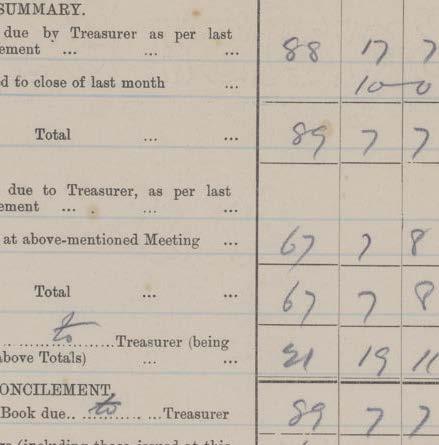 SUMMARY.
due by Treasurer as per last
ement ... ... ... 88 17 7
d to close of last month ... 10 0
Total ... ... 89 7 7
due to Treasurer, as per last
ement ... ... ...
at above-mentioned Meeting ... 67 7 8
Total ... ... 67 7 8
to Treasurer (being
above Totals) ... ... 21 19 11
ONCILEMENT.
Book due to Treasurer 89 7 7